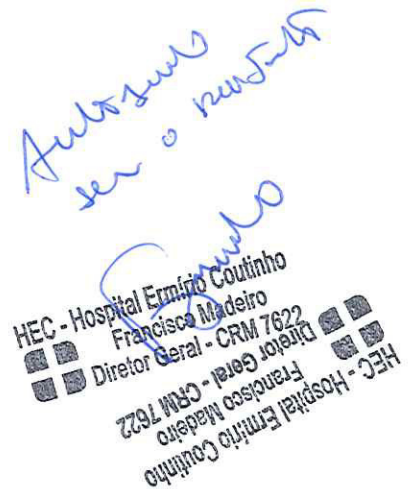 Autorizado
ser o
HEC - Hospital Ermírio Coutinho
Francisco Madeiro
Diretor Geral - CRM 7622
HEC - Hospital Ermírio Coutinho
Francisco Madeiro
Diretor Geral - CRM 7622